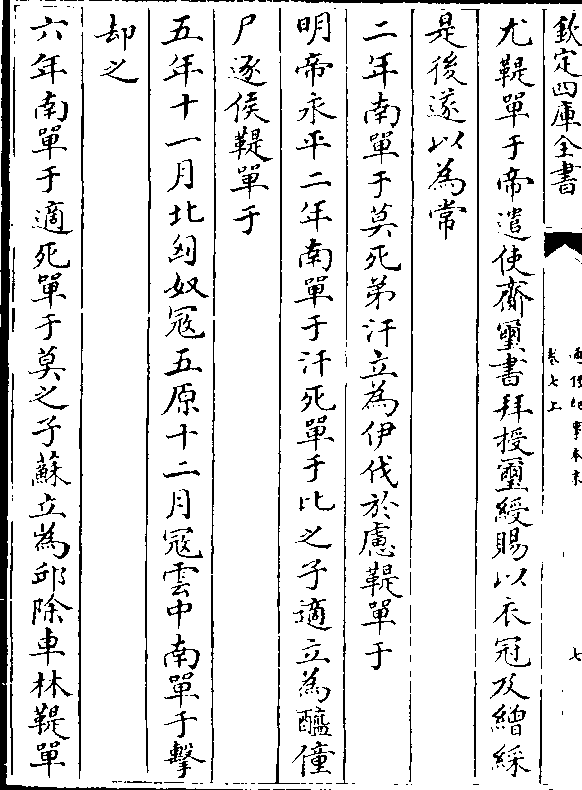 欽定四庫全書
通鑑紀事本末
卷七上
七
尤鞮單于帝遣使齎璽書拜授璽綬賜以衣冠及繒綵
是後遂以為常
二年南單于莫死弟汗立為伊伐於慮鞮單于
明帝永平二年南單于汗死單于比之子適立為醢僮
尸逐侯鞮單于
五年十一月北匈奴冦五原十二月冦雲中南單于擊
却之
六年南單于適死單于莫之子蘇立為邱除車林鞮單